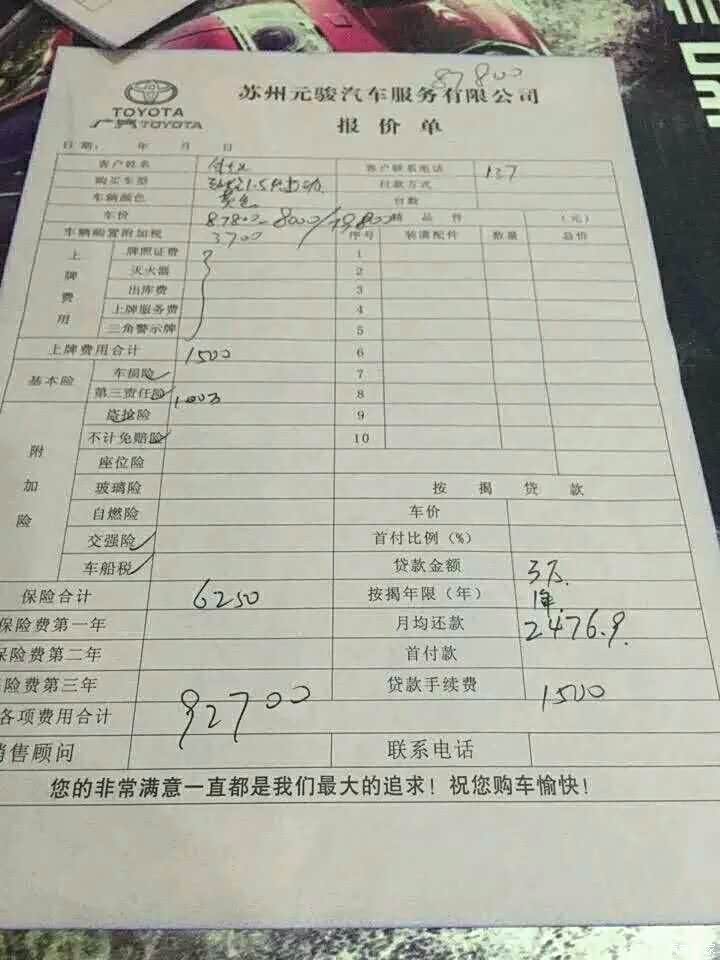 87800
苏州元骏汽车服务有限公司
TOYOTA
广汽TOYOTA
报 价 单
日期: 年 月 日
客户姓名 客户联系电话 137
购买车型 1.5 自动 付款方式
车辆颜色 黄色 台数
车价 87800-8000/79800 精品件 (元)
车辆购置附加税 3700 序号 装潢配件 数量 总价
上牌费用 牌照证费 1
灭火器 2
出库费 3
上牌服务费 4
三角警示牌 5
上牌费用合计 1500 6
基本险 车损险 7
第三责任险 100万 8
附加险 盗抢险 9
不计免赔险 10
座位险
玻璃险 按 揭 贷 款
自燃险 车价
交强险 首付比例(%)
车船税 贷款金额 3万.
保险合计 6250 按揭年限(年) 1年.
保险费第一年 月均还款 2476.9.
保险费第二年 首付款
险费第三年 贷款手续费 1500
各项费用合计 92700
销售顾问 联系电话
您的非常满意一直都是我们最大的追求!祝您购车愉快!